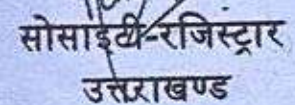 सोसाईटी-रजिस्ट्रार
उत्तराखण्ड